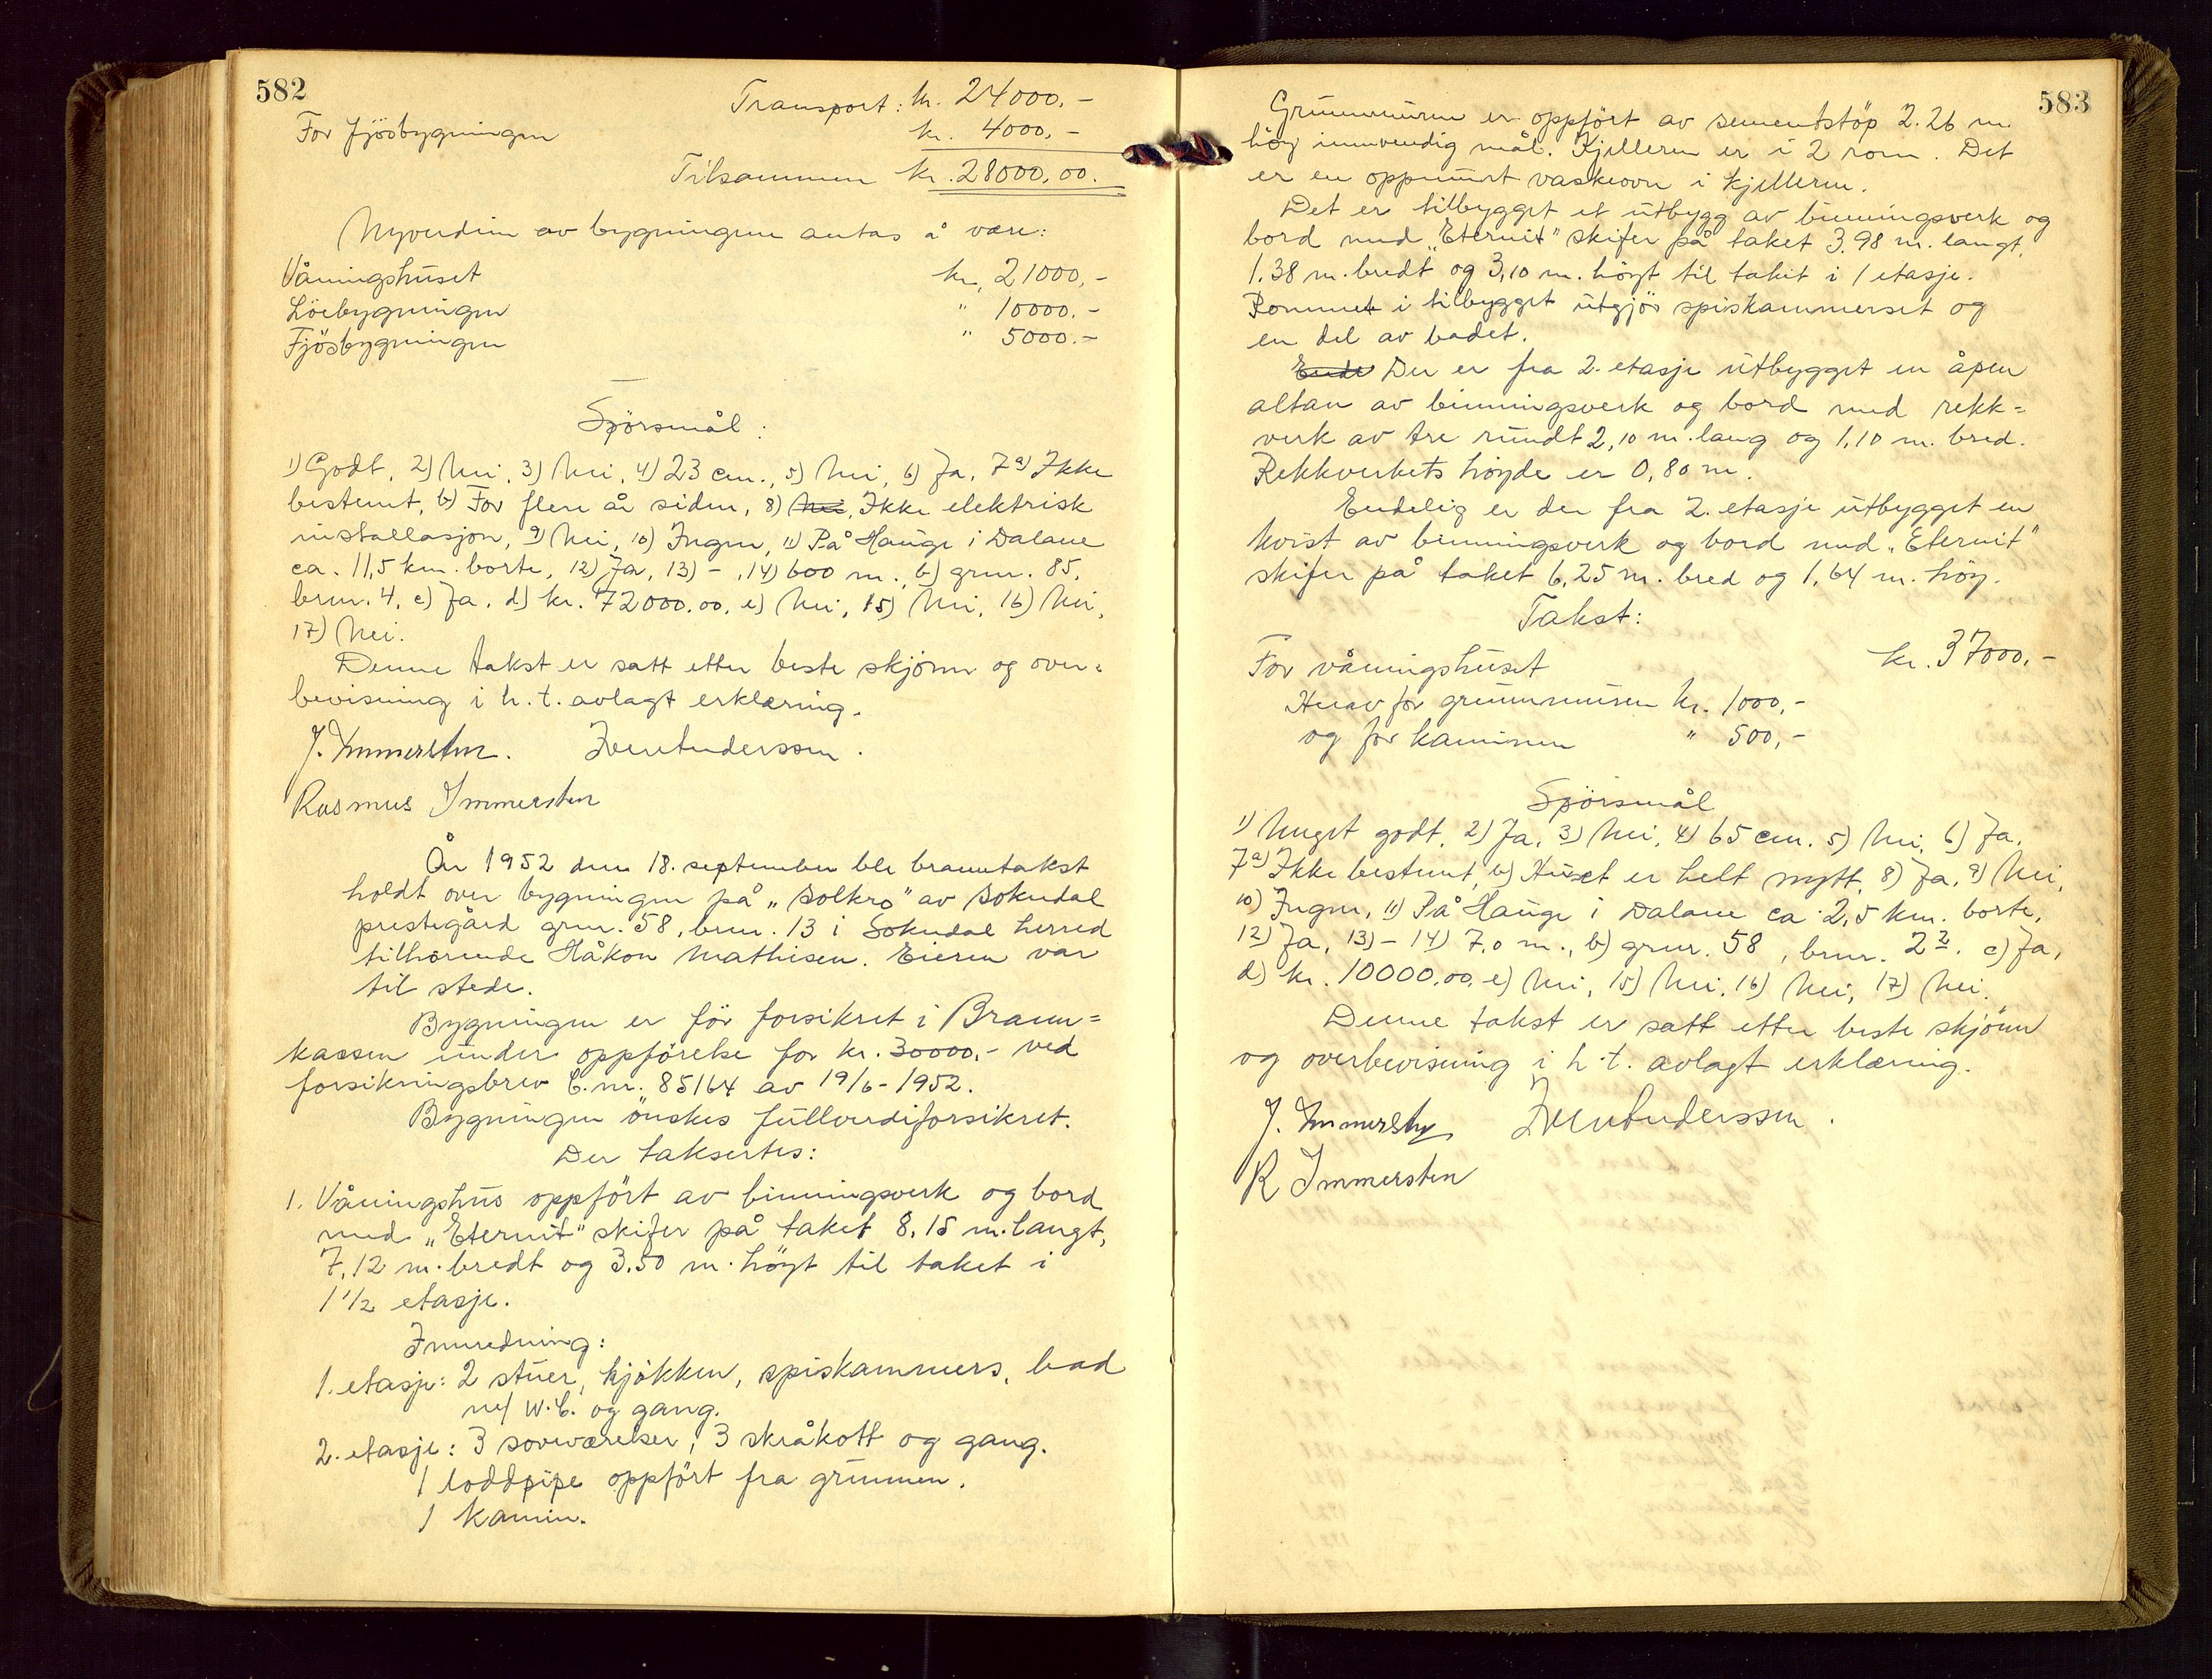 582
Transport: kr. 24000,-
For fjösbygningen kr. 4000,-
Tilsammen kr. 28000,00.
Nyverdien av bygningene antas å være:
Våningshuset kr. 21000,-
Löebygningen " 10000.-
Fjösbygningen " 5000.-
Spörsmål:
1) Godt, 2) Nei, 3) Nei, 4) 23 cm., 5) Nei, 6) Ja, 7a) Ikke
bestemt, b) For flere år siden, 8) Nei, Ikke elektrisk
installasjon, 9) Nei, 10) Ingen, 11) På Hauge i Dalane
ca. 11,5 km. borte, 12) Ja, 13) - , 14) 600 m., b) gnr. 85,
bnr. 4, c) Ja, d) kr. 72000.00, e) Nei, 15) Nei, 16) Nei,
17) Nei.
Denne takst er satt etter beste skjönn og over=
bevisning i h. t. avlagt erklæring.
J. Immerstein. Anderssen.
Rasmus Immerstein
År 1952 den 18. september ble branntakst
holdt over bygningen på „Solkro" av Sokndal
prestegård gnr. 58, bnr. 13 i Sokndal herred
tilhörende Håkon Mathisen. Eieren var
til stede.
Bygningen er för forsikret i Brann=
kassen under oppförelse for kr. 30000,- ved
forsikringsbrev C. nr. 85164 av 19/6-1952.
Bygningen önskes fullverdiforsikret.
Der taksertes:
1. Våningshus oppfört av binningsverk og bord
med „Eternit" skifer på taket 8,15 m. langt,
7,12 m. bredt og 3,50 m. höyt til taket i
1 1/2 etasje.
Innredning:
1. etasje: 2 stuer, kjökken, spiskammers, bad
m/ W.C. og gang.
2. etasje: 3 soveværelser, 3 skråkott og gang.
1 loddpipe oppfört fra grunnen.
1 kamin.
583
Grunnmuren er oppfört av sementstöp 2.26 m
höy innvendig mål. Kjelleren er i 2 rom. Det
er en oppmurt vaskeovn i kjelleren.
Det er tilbygget et utbygg av binningsverk og
bord med „Eternit" skifer på taket 3,98 m. langt,
1,38 m. bredt og 3,10 m. höyt til taket i 1 etasje.
Rommet i tilbygget utgjör spiskammerset og
en del av badet.
Ende Der er fra 2. etasje utbygget en åpen
altan av binningsverk og bord med rekk=
verk av tre rundt 2,10 m. lang og 1,10 m. bred.
Rekkverkets höyde er 0,80 m.
Endelig er der fra 2. etasje utbygget en
kvist av binningsverk og bord med „Eternit"
skifer på taket 6,25 m. bred og 1,64 m. höy.
Takst:
For våningshuset kr. 37000,-
Herav for grunnmuren kr. 1000,-
og for kaminen " 500,-
Spörsmål
1) Meget godt, 2) Ja, 3) Nei, 4) 65 cm. 5) Nei, 6) Ja,
7a) Ikke bestemt, b) Huset er helt nytt, 8) Ja, 9) Nei,
10) Ingen, 11) På Hauge i Dalane ca 2,5 km. borte,
12) Ja, 13) - 14) 7,0 m., b) gnr. 58, bnr. 22. c) Ja,
d) kr. 10000,00, e) Nei, 15) Nei, 16) Nei, 17) Nei.
Denne takst er satt etter beste skjönn
og overbevisning i h. t. avlagt erklæring.
J. Immerstein Anderssen.
R Immerstein